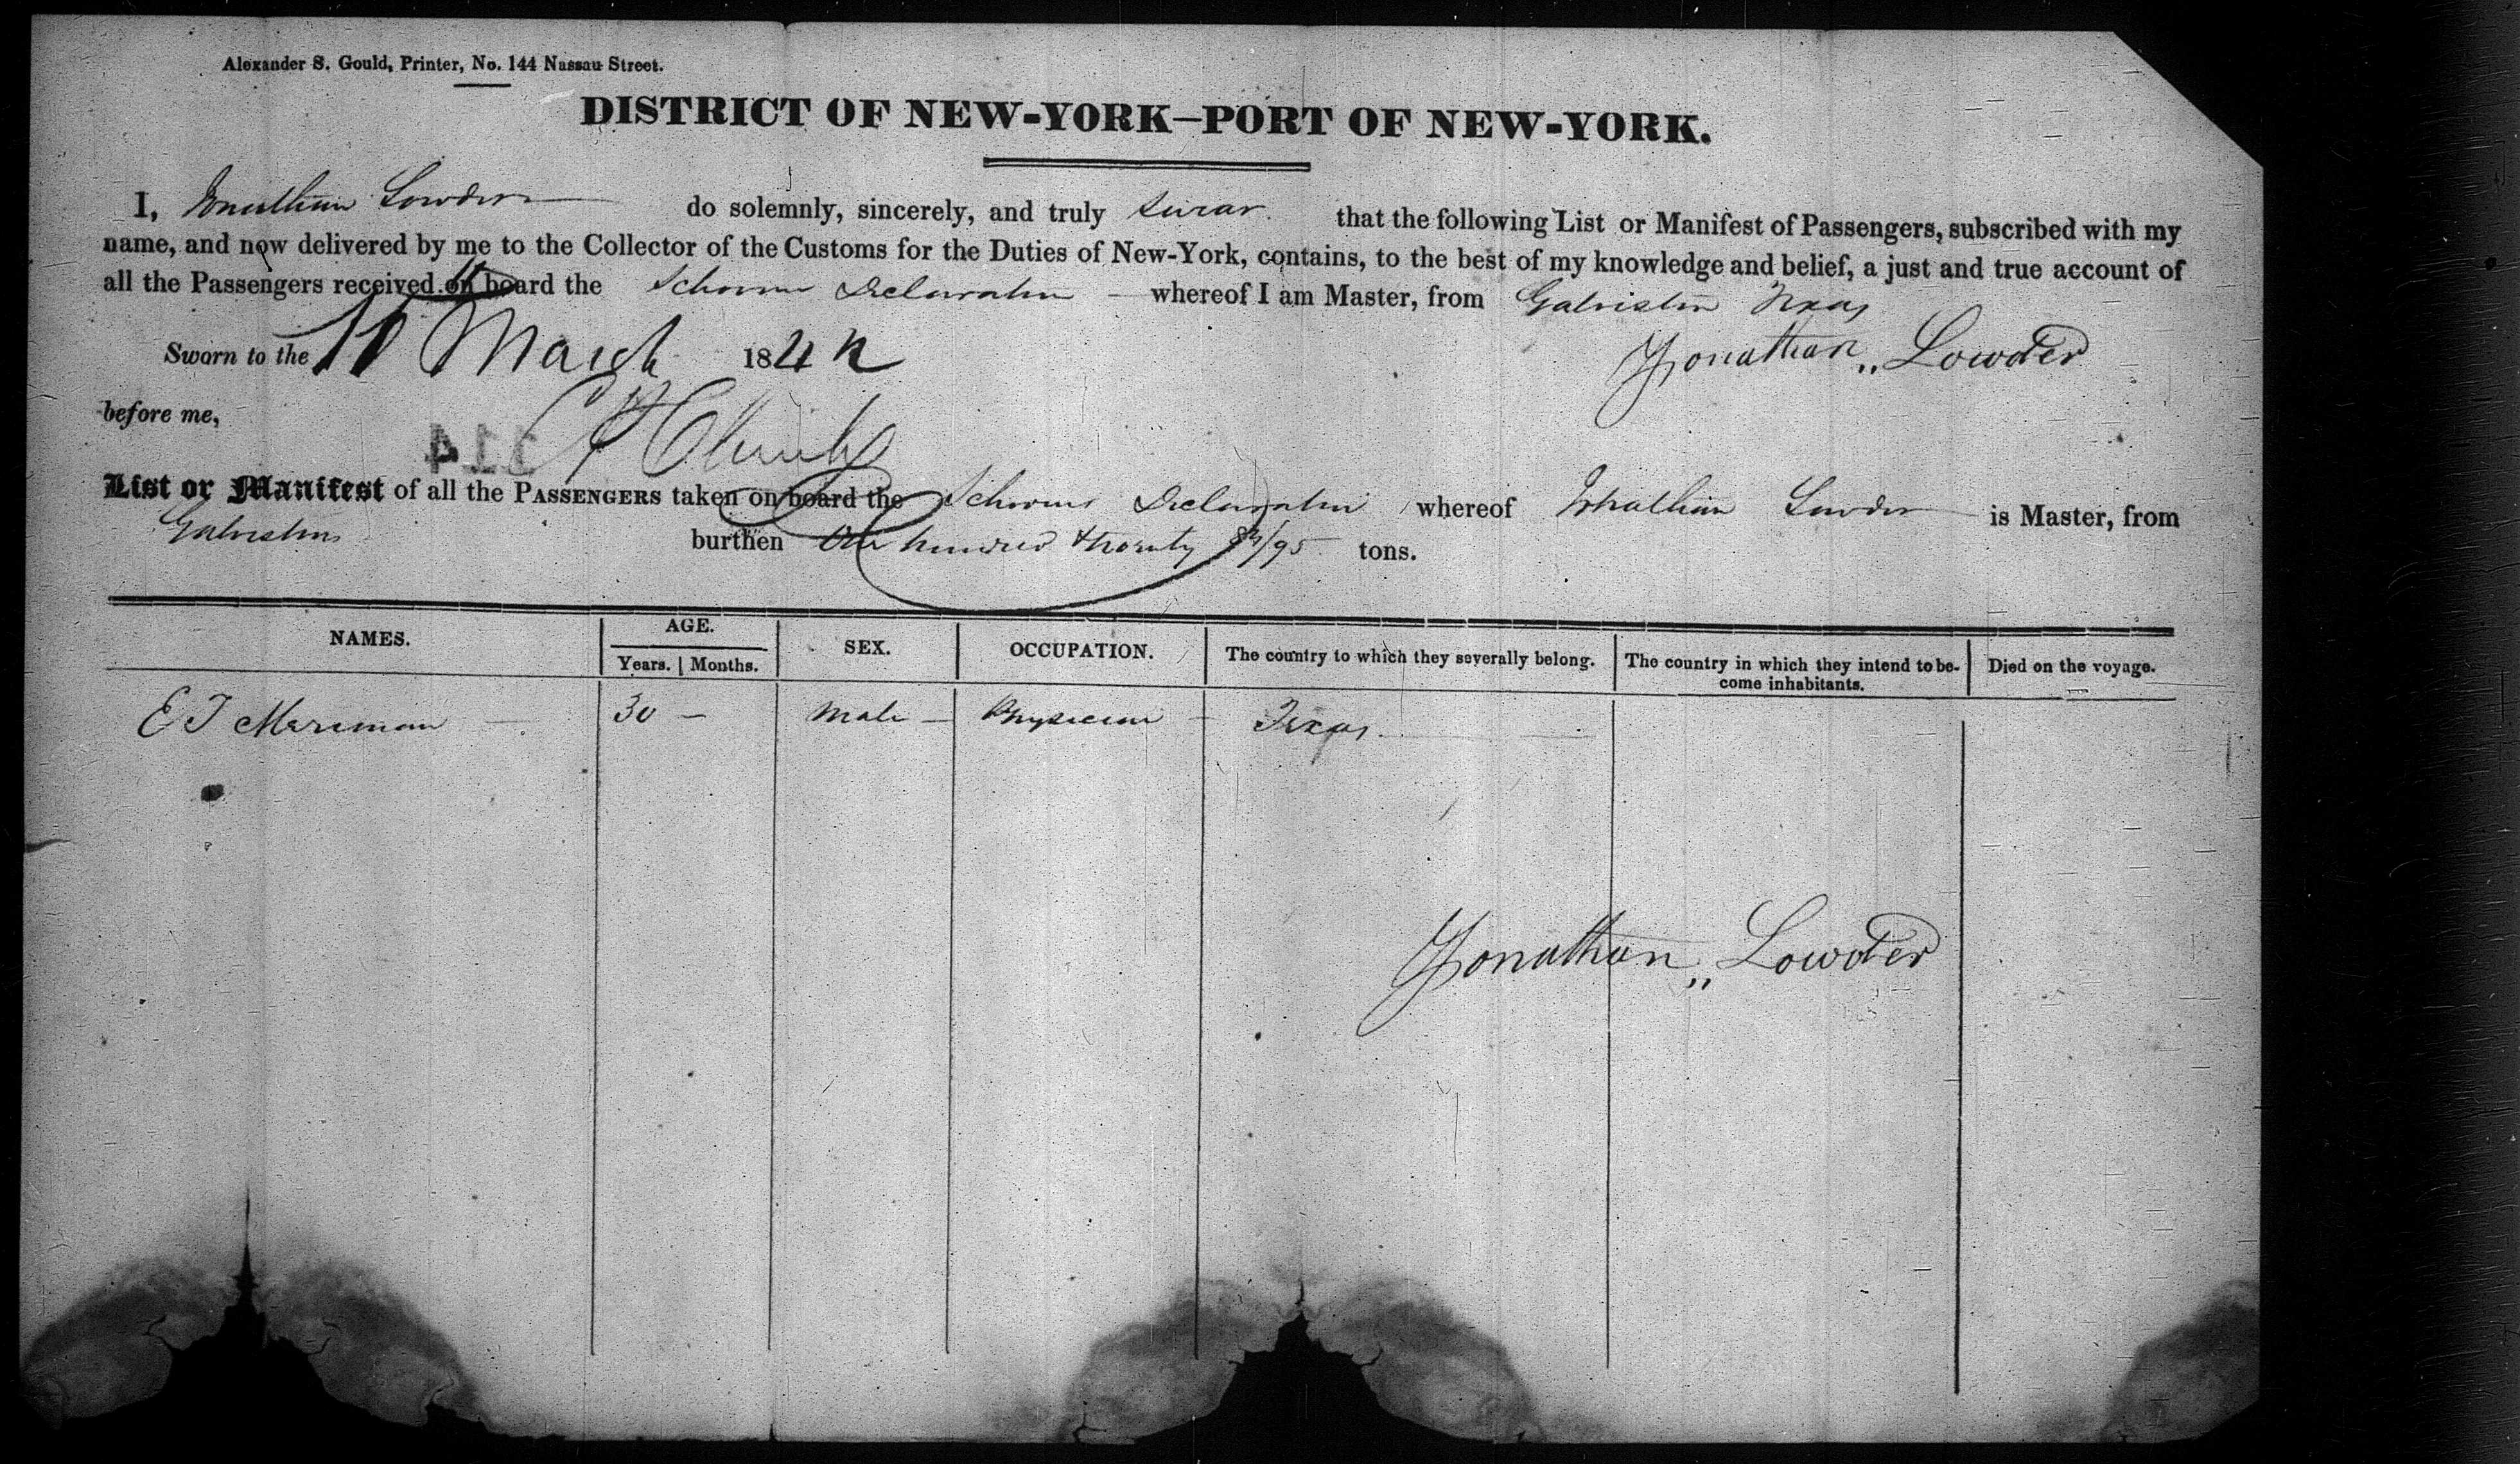 Alexander S. Gould, Printer, No. 144 Nassau Street.
DISTRICT OF NEW-YORK—PORT OF NEW-YORK.
I, Jonathan Lowder do solemnly, sincerely, and truly swear that the following List or Manifest of Passengers, subscribed with my
name, and now delivered by me to the Collector of the Customs for the Duties of New-York, contains, to the best of my knowledge and belief, a just and true account of
all the Passengers received on board the Schooner Declaration whereof I am Master, from Galveston Texas
Sworn to the March 184 Jonathan Lowder
before me,
114
List or Manifest of all the PASSENGERS taken on board the Schooner Declaration whereof Jonathan Lowder is Master, from
Galveston burthen One hundred & twenty /95 tons.
NAMES. AGE. SEX. OCCUPATION. The country to which they severally belong. The country in which they intend to be-come inhabitants. Died on the voyage.
Years. | Months.
E T Merriman 30 — Male — Physician — Texas.
Jonathan Lowder